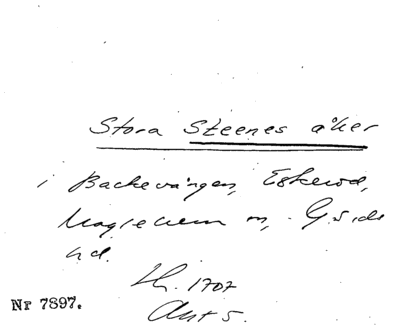 Stora Steenes åker
i Backevången, Eskerod,
Maglehem sn, G-s,ds
hd.
Lh. 1707
Akt 5.
Nr 7897.